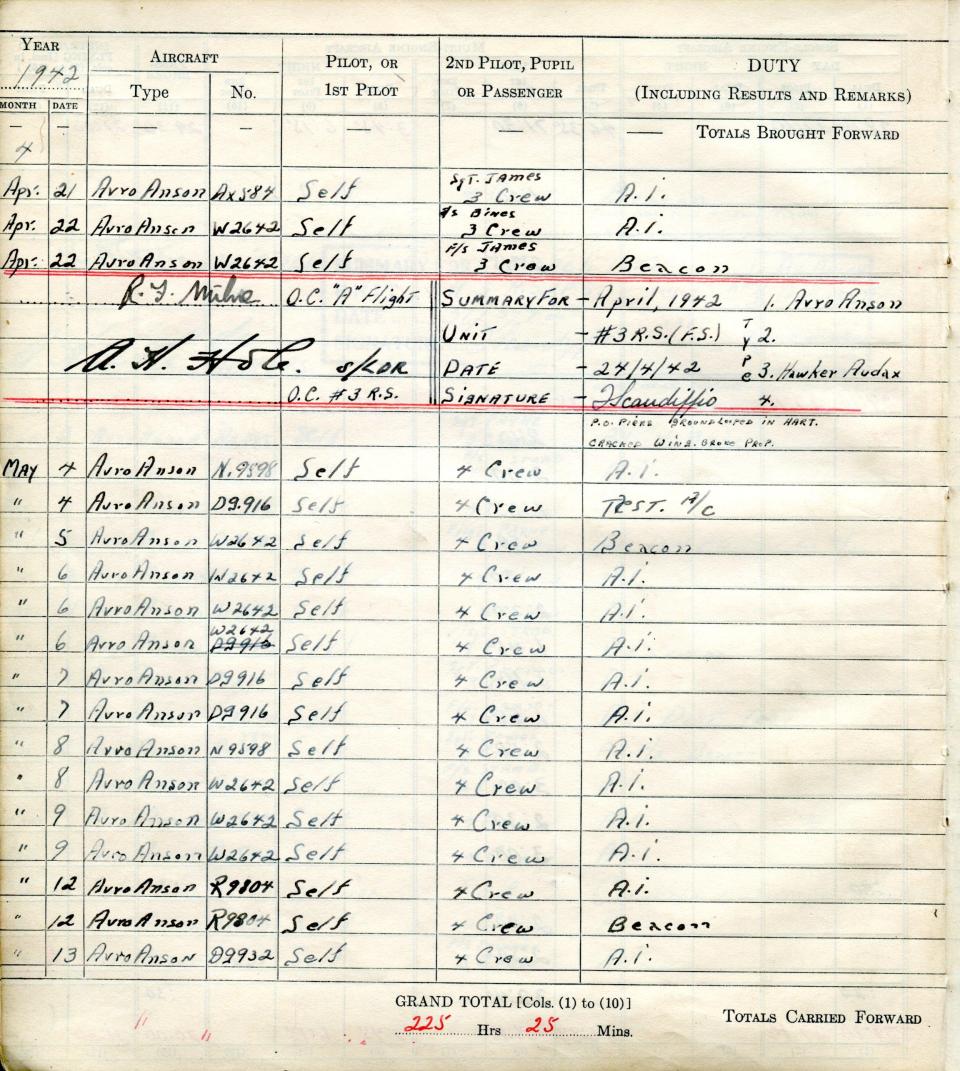 YEAR AIRCRAFT PILOT, OR 2ND PILOT, PUPIL DUTY
1942 Type No. 1ST PILOT OR PASSENGER (INCLUDING RESULTS AND REMARKS)
MONTH DATE
— — — — — — TOTALS BROUGHT FORWARD
4
Sgt. James
Apr. 21 Avro Anson Ax584 Self 3 Crew A.i.
Bines
Apr. 22 Avro Anson W2642 Self 3 Crew A.i.
F/s James
Apr. 22 Avro Anson W2642 Self 3 Crew Beacon
O.C. "A" Flight SUMMARY FOR - April, 1942 1. Avro Anson
UNIT - #3 R.S. (F.S.) TYPE 2.
A. H. Hole. S/LDR DATE - 24/4/42 3. Hawker Audax
O.C. #3 R.S. SIGNATURE - Scandiffio 4.
P.O. PIERS GROUNDLOOPED IN HART.
CRACKED WING. BROKE PROP.
MAY 4 Avro Anson N.9598 Self 4 Crew A.i.
" 4 Avro Anson D9.916 Self 4 Crew TEST. A/C
" 5 Avro Anson W2642 Self 4 Crew Beacon
" 6 Avro Anson W2642 Self 4 Crew A.i.
" 6 Avro Anson W2642 Self 4 Crew A.i.
W2642
" 6 Avro Anson D9916 Self 4 Crew A.i.
" 7 Avro Anson D9916 Self 4 Crew A.i.
" 7 Avro Anson D9916 Self 4 Crew A.i.
" 8 Avro Anson N9598 Self 4 Crew A.i.
" 8 Avro Anson W2642 Self 4 Crew A.i.
" 9 Avro Anson W2642 Self 4 Crew A.i.
" 9 Avro Anson W2642 Self 4 Crew A.i.
" 12 Avro Anson R9804 Self 4 Crew A.i.
" 12 Avro Anson R9804 Self 4 Crew Beacon
" 13 Avro Anson D9932 Self 4 Crew A.i.
GRAND TOTAL [Cols. (1) to (10)] TOTALS CARRIED FORWARD
225 Hrs 25 Mins.